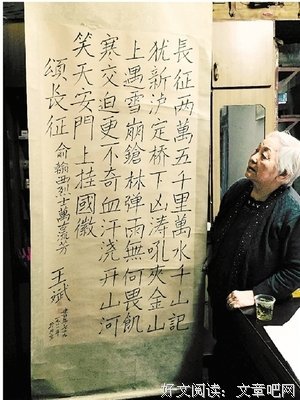 長征两萬五千里萬水千山記
犹新泸定桥下凶涛吼夹金山
上遇雪崩鎗林弹雨無何畏飢
寒交迫更不奇血汗浇开山河
笑天安門上挂國徽
頌长征
俞翰西烈士萬古流芳
王斌
好文阅读：文章吧网